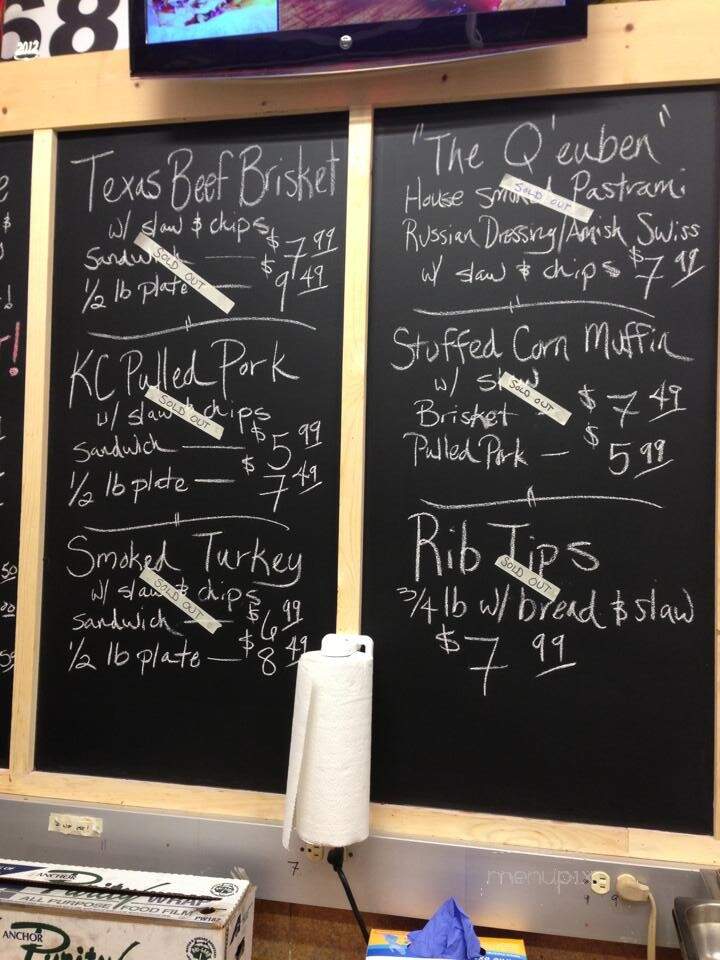 68
2012
Texas Beef Brisket
w/ slaw & chips
Sandwich — $7.99
1/2 lb plate — $9.49
SOLD OUT
KC Pulled Pork
w/ slaw & chips
SOLD OUT
Sandwich — $5.99
1/2 lb plate — $7.49
Smoked Turkey
w/ slaw & chips
SOLD OUT
Sandwich — $6.99
1/2 lb plate — $8.49
"The Q'euben"
House Smoked Pastrami
SOLD OUT
Russian Dressing/Amish Swiss
w/ slaw & chips $7.99
Stuffed Corn Muffin
w/ slaw
SOLD OUT
Brisket — $7.49
Pulled Pork — $5.99
Rib Tips
SOLD OUT
3/4 lb w/ bread & slaw
$7.99
7
9
menupix
ANCHOR
Purity WRAP
ALL PURPOSE FOOD FILM
PW182
ANCHOR
Purity